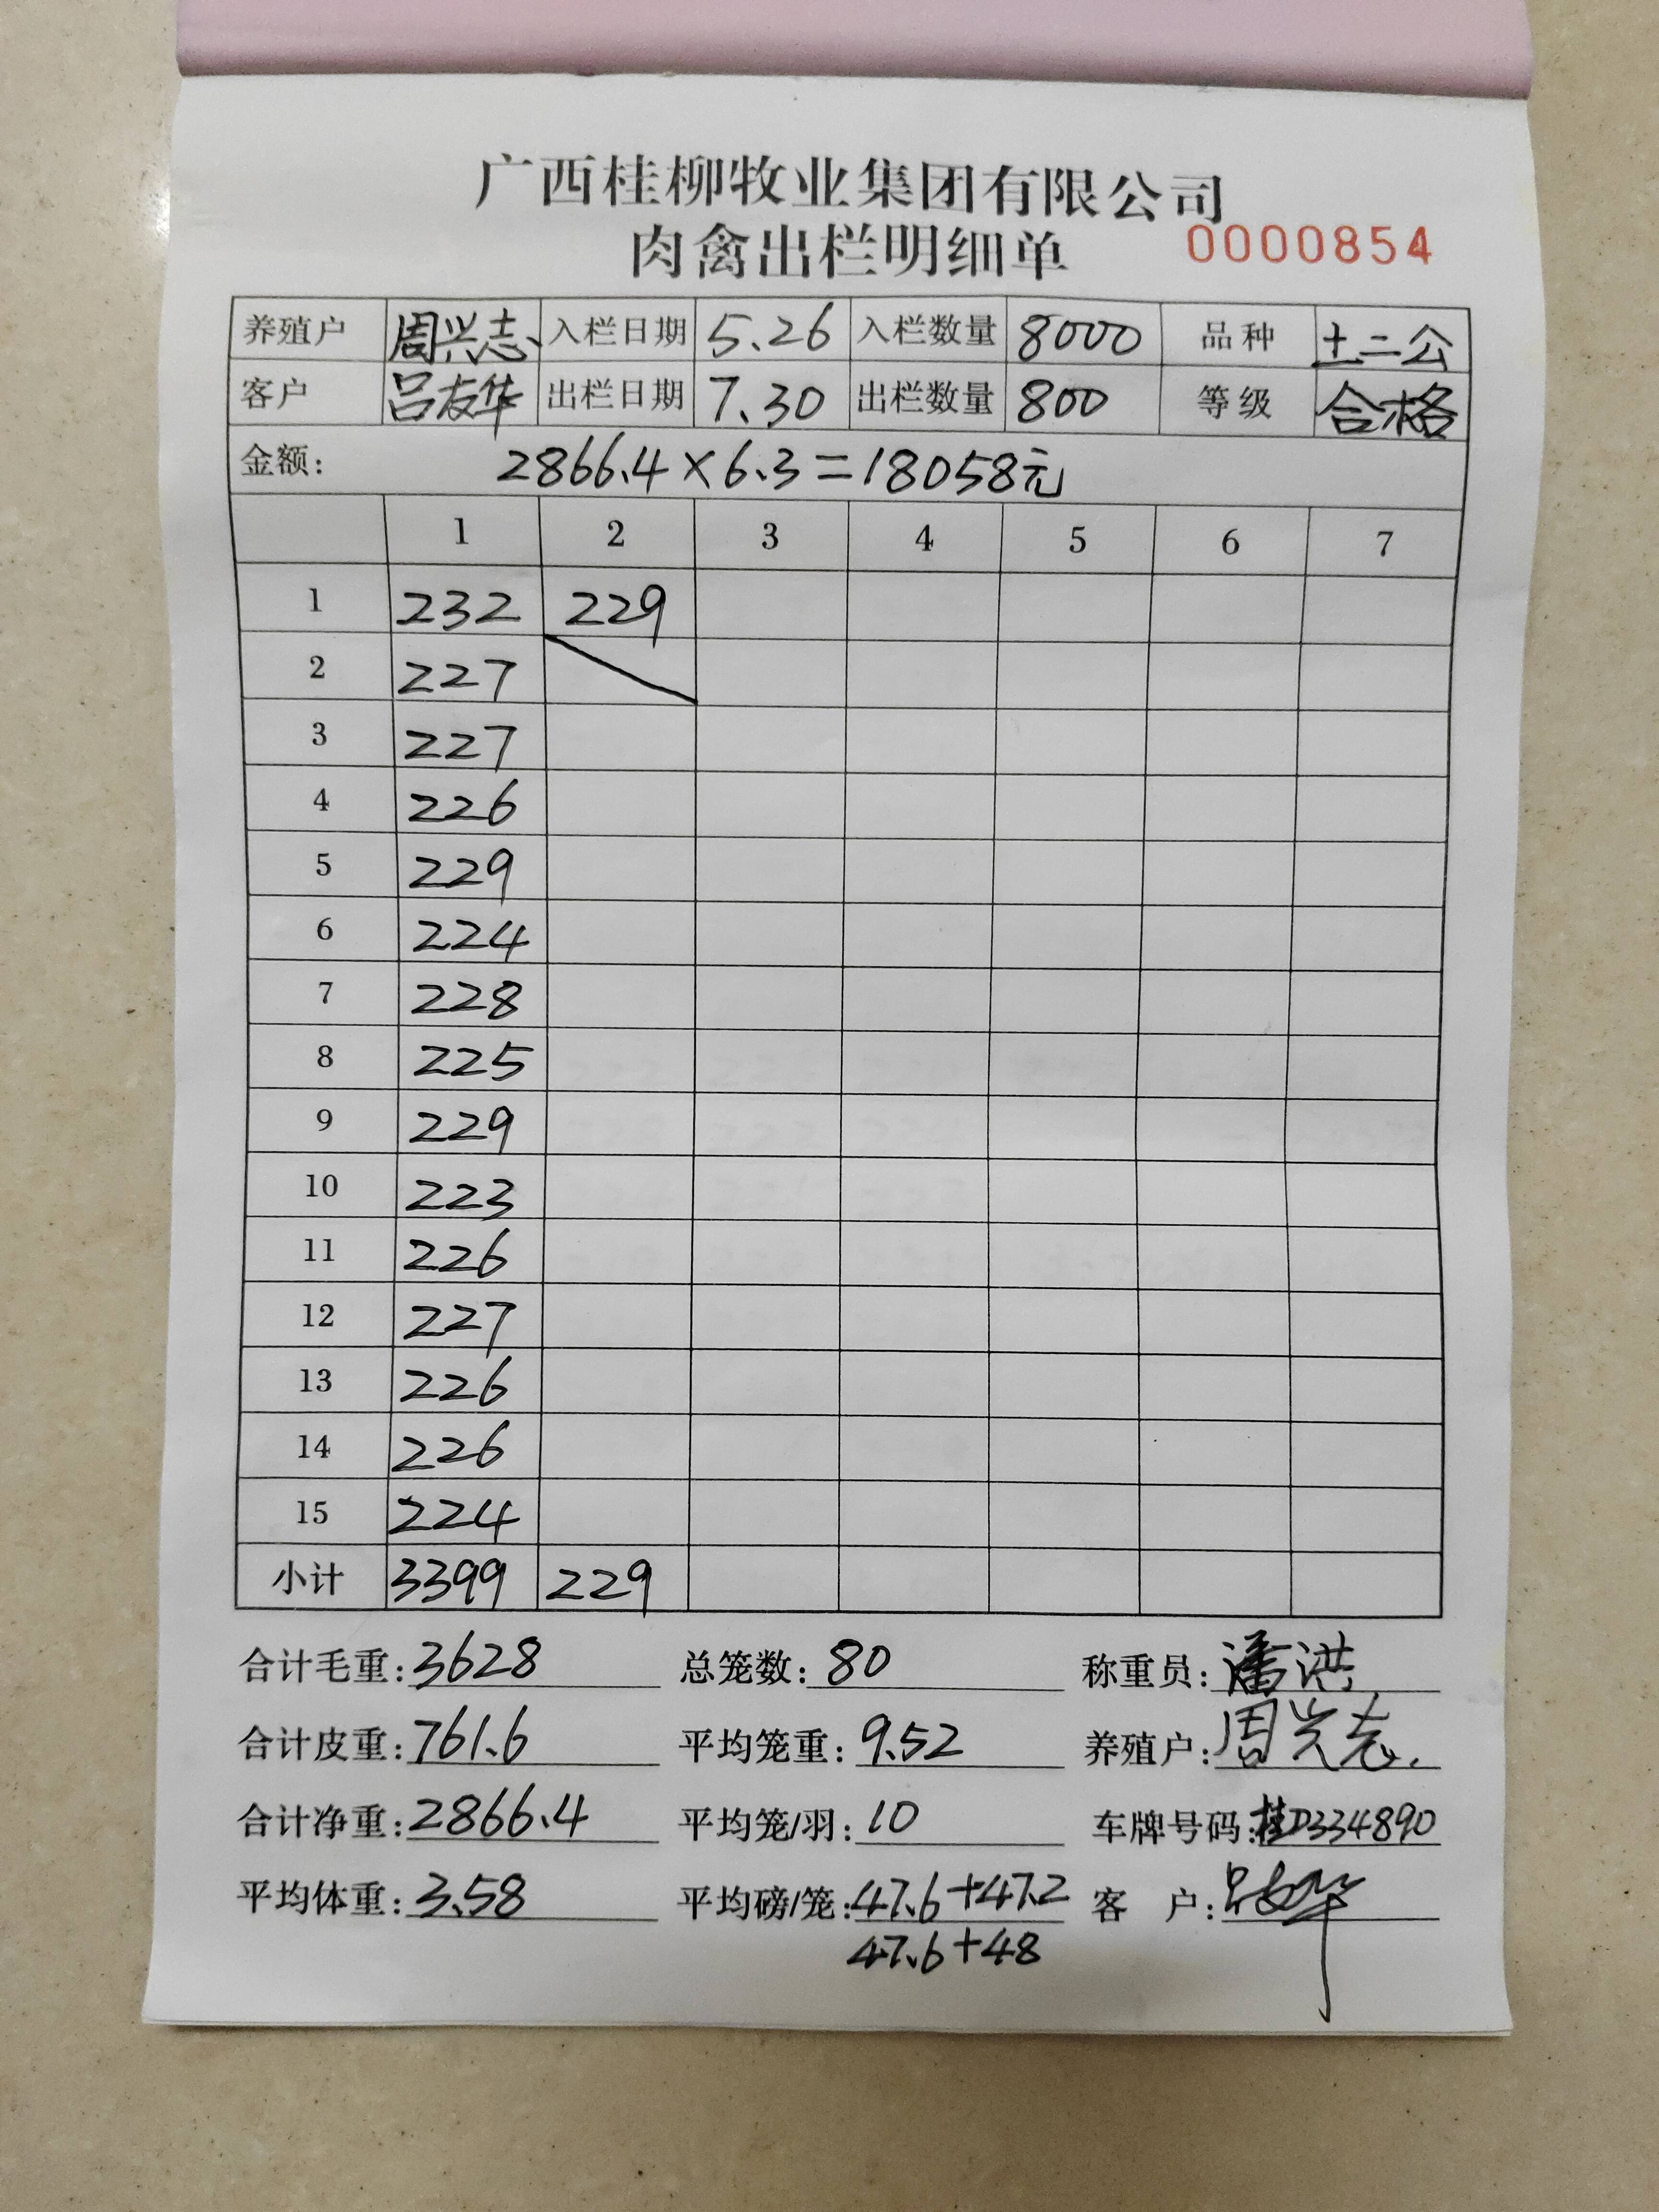 广西桂柳牧业集团有限公司
肉禽出栏明细单 0000854
养殖户 周兴志 入栏日期 5.26 入栏数量 8000 品种 土二公
客户 吕友华 出栏日期 7.30 出栏数量 800 等级 合格
金额: 2866.4×6.3=18058元
1 2 3 4 5 6 7
1 232 229
2 227
3 227
4 226
5 229
6 224
7 228
8 225
9 229
10 223
11 226
12 227
13 226
14 226
15 224
小计 3399 229
合计毛重: 3628 总笼数: 80 称重员: 潘洪
合计皮重: 761.6 平均笼重: 9.52 养殖户: 周兴志
合计净重: 2866.4 平均笼/羽: 10 车牌号码: 桂D334890
平均体重: 3.58 平均磅/笼: 47.6+47.2 客 户: 吕友华
47.6+48